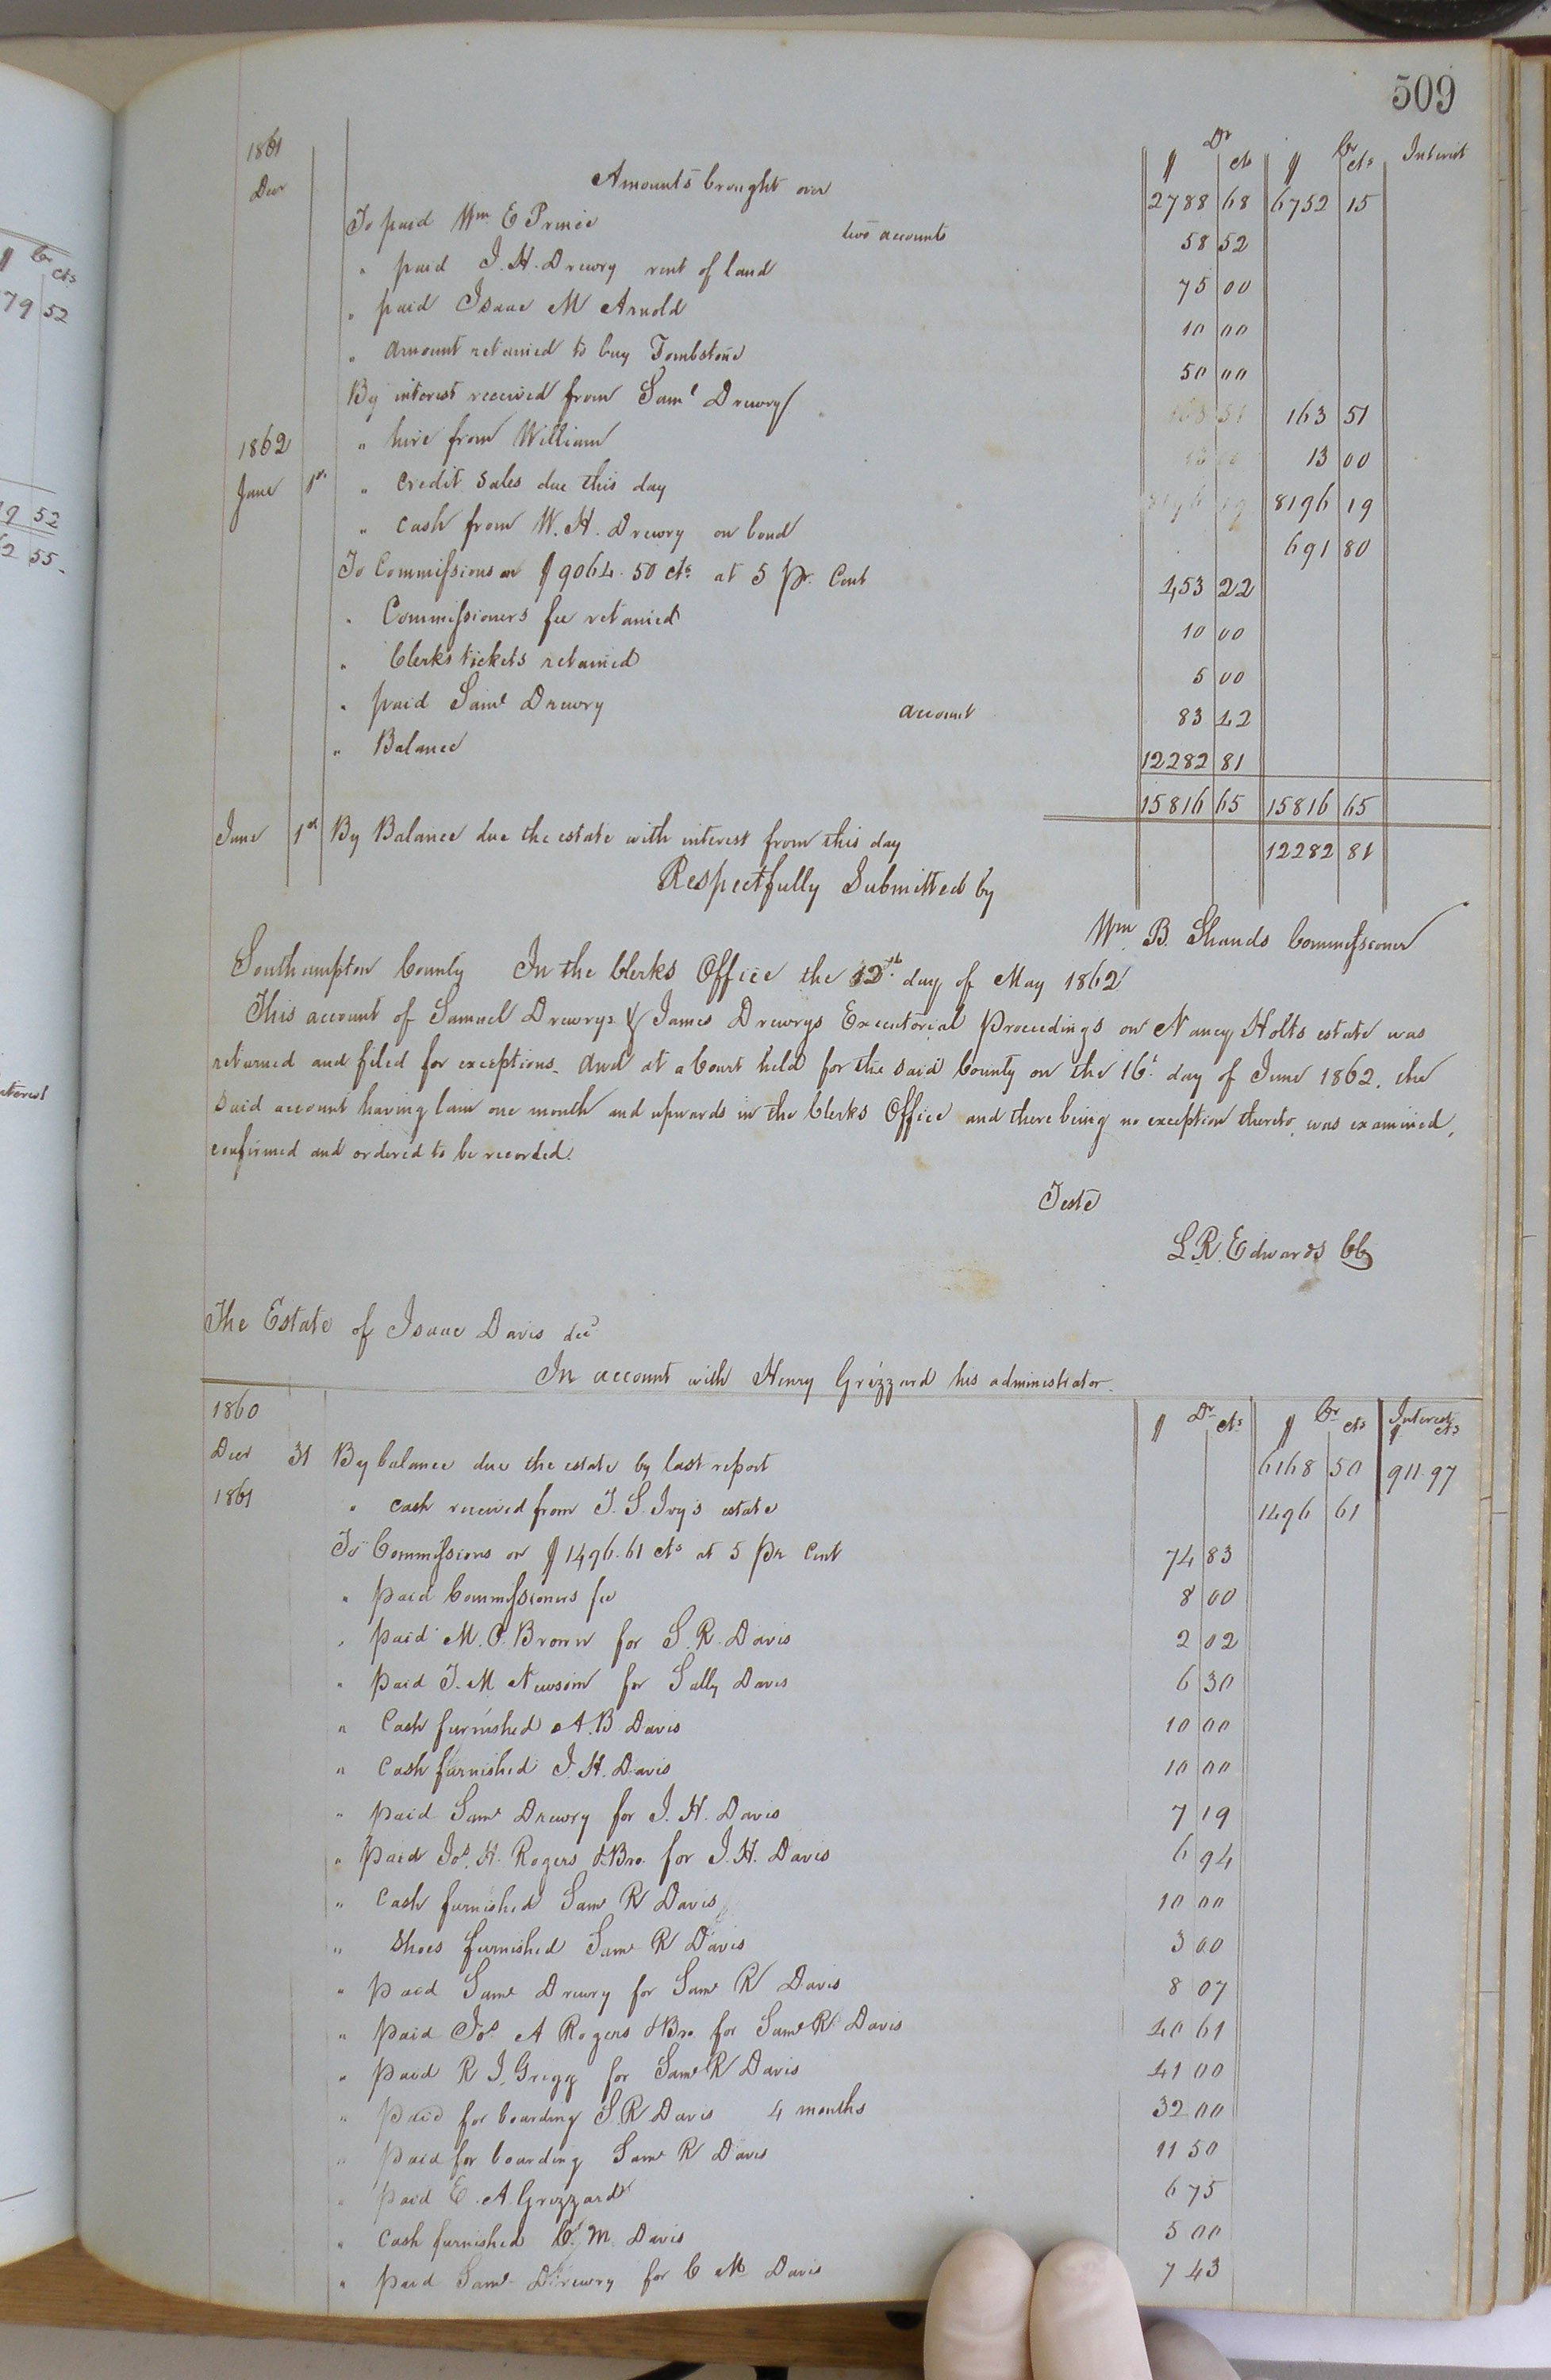 509
1861 Dr Cr Interest
$ cts $ cts
Decr Amounts brought over 2788 68 6752 15
To paid Wm E Prince two accounts 58 52
" paid J. H. Drewry rent of land 75 00
" paid Isaac M Arnold 10 00
" amount retained to buy Tombstone 50 00
By interest received from Saml Drewry 163 51
1862 " hire from William 13 00
June 1st " credit sales due this day 8196 19
" cash from W. H. Drewry on bond 691 80
To Commissions on $9064.50 cts at 5 pr. Cent 453 22
" Commissioners fee retained 10 00
" Clerks tickets retained 5 00
" paid Saml Drewry account 83 42
" Balance 12282 81
15816 65 15816 65
June 1st By Balance due the estate with interest from this day 12282 81
Respectfully Submitted by
Wm B. Shands Commissioner
Southampton County In the Clerks Office the 12th day of May 1862
This account of Samuel Drewrys & James Drewrys Executorial Proceedings on Nancy Holts estate was
returned and filed for exceptions. And at a Court held for the said County on the 16t day of June 1862. the
said account having lain one month and upwards in the Clerks Office and there being no exception thereto, was examined,
confirmed and ordered to be recorded.
Teste
L. R. Edwards CC
The Estate of Isaac Davis decd
In account with Henry Grizzard his administrator.
1860 Dr Cr Interest
$ cts $ cts $ cts
Decr 31 By balance due the estate by last report 6168 50 911.97
1861 " cash received from J. S. Ivy's estate 1496 61
To Commissions on $1496.61 cts at 5 pr Cent 74 83
" paid Commissioners fee 8 00
" paid M. C. Brown for S. R. Davis 2 02
" paid J. M Newsom for Sally Davis 6 30
" Cash furnished A. B Davis 10 00
" Cash furnished J. H. Davis 10 00
" paid Saml Drewry for J. H. Davis 7 19
" paid Jos. H. Rogers & Bro. for J. H. Davis 6 94
" Cash furnished Saml R Davis 10 00
" Shoes furnished Saml R Davis 3 00
" paid Saml Drewry for Saml R Davis 8 07
" paid Jos A Rogers & Bro for Saml R Davis 40 61
" paid R J. Grigg for Saml R Davis 41 00
" paid for boarding S. R Davis 4 months 32 00
" paid for boarding Saml R Davis 11 50
" paid E. A. Grizzard 6 75
" Cash furnished C. M. Davis 5 00
" paid Saml Drewry for C M Davis 7 43